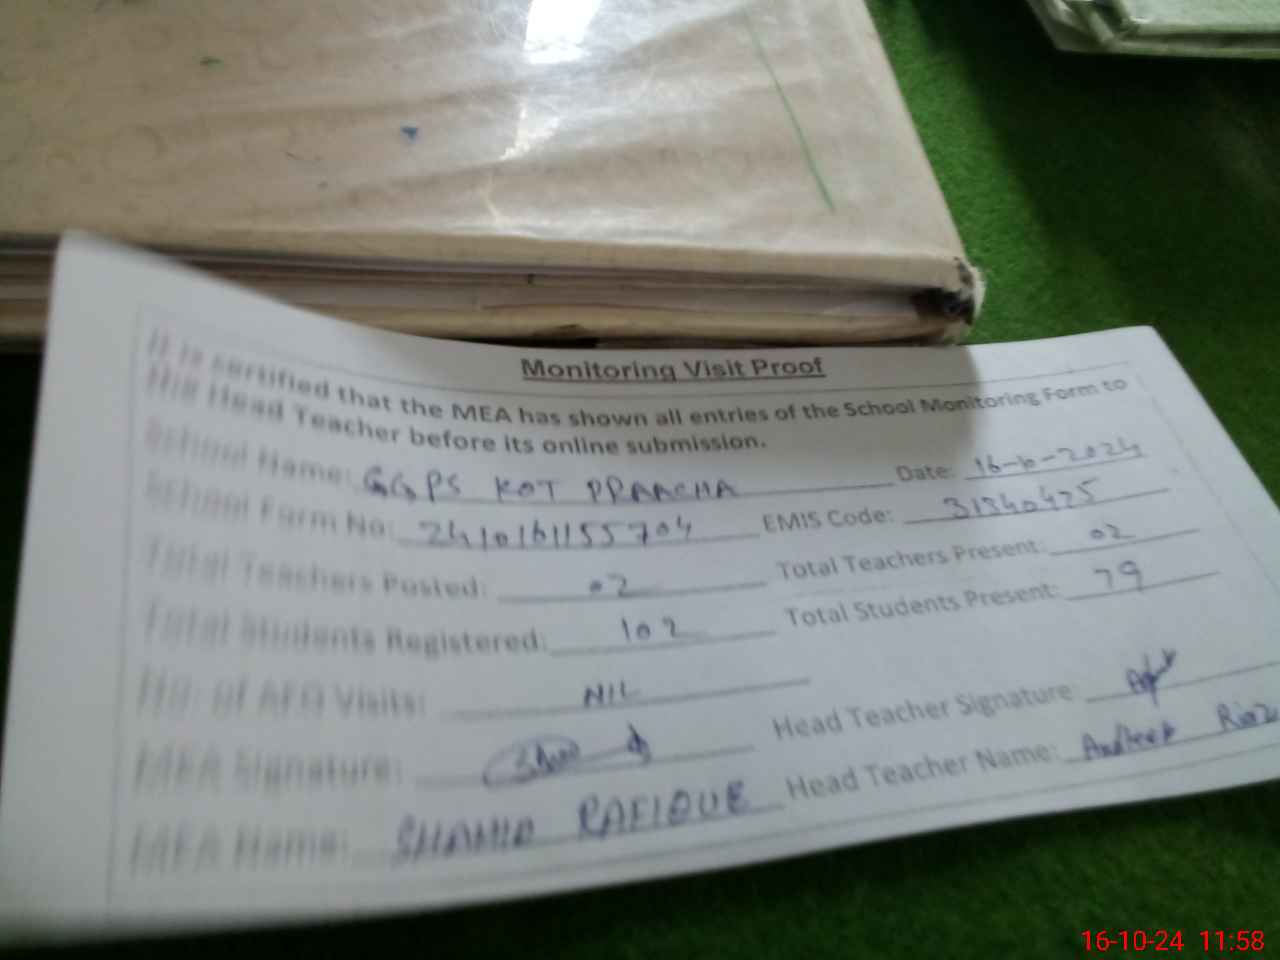 Monitoring Visit Proof
It is certified that the MEA has shown all entries of the School Monitoring Form to
the Head Teacher before its online submission.
School Name: GGPS KOT PPRACHA Date: 16-10-2024
School Form No: 2410161155704 EMIS Code: 31340425
Total Teachers Posted: 02 Total Teachers Present: 02
Total Students Registered: 102 Total Students Present: 79
No. of AEO Visits: NIL
MEA Signature: Head Teacher Signature
MEA Name: SHAHID RAFIQUE Head Teacher Name: Riaz
16-10-24 11:58